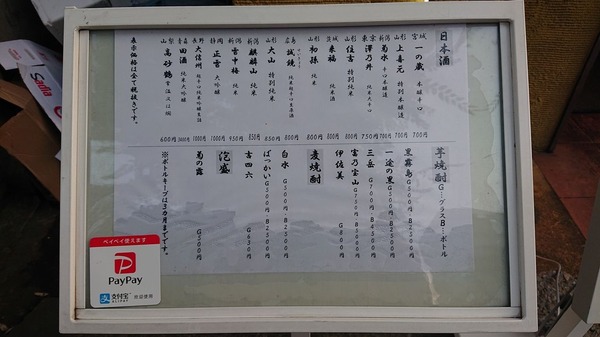 日本酒
宮城 一の蔵 本醸辛口 700円
山形 上喜元 特別本醸造 700円
新潟 菊水 辛口本醸造 700円
東京 澤乃井 純米大辛口 750円
山形 住吉 特別純米 800円
茨城 来福 純米酒 800円
山形 初孫 純米 800円
広島 誠鏡 800円
山形 大山 特別純米 850円
新潟 麒麟山 純米 850円
新潟 雪中梅 950円
静岡 正雪 大吟醸 1000円
長野 大信州 1000円
青森 田酒 純米大吟醸
山梨 高砂鶴 600円
表示価格は全て税抜きです。
芋焼酎 G…グラス B…ボトル
黒霧島 G500円 B2500円
一途の黒 G500円 B2500円
三岳 G700円 B4500円
富乃宝山 G750円
伊佐美 G800円
麦焼酎
白水 G500円 B2500円
ばっかい G500円 B2500円
吉四六 G630円
泡盛
菊の露 G500円
※ボトルキープは3カ月までです。
ペイペイ使えます
PayPay
支付宝
ALIPAY
欢迎使用